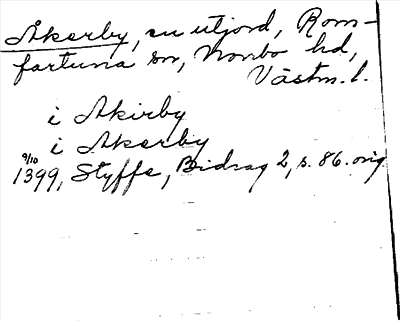 Åkerby, en utjord, Rom-
fartuna sn, Norrbo hd,
Västm. l.
i Akirby
i Akerby
9/10
1399, Styffe, Bidrag 2, s. 86. orig